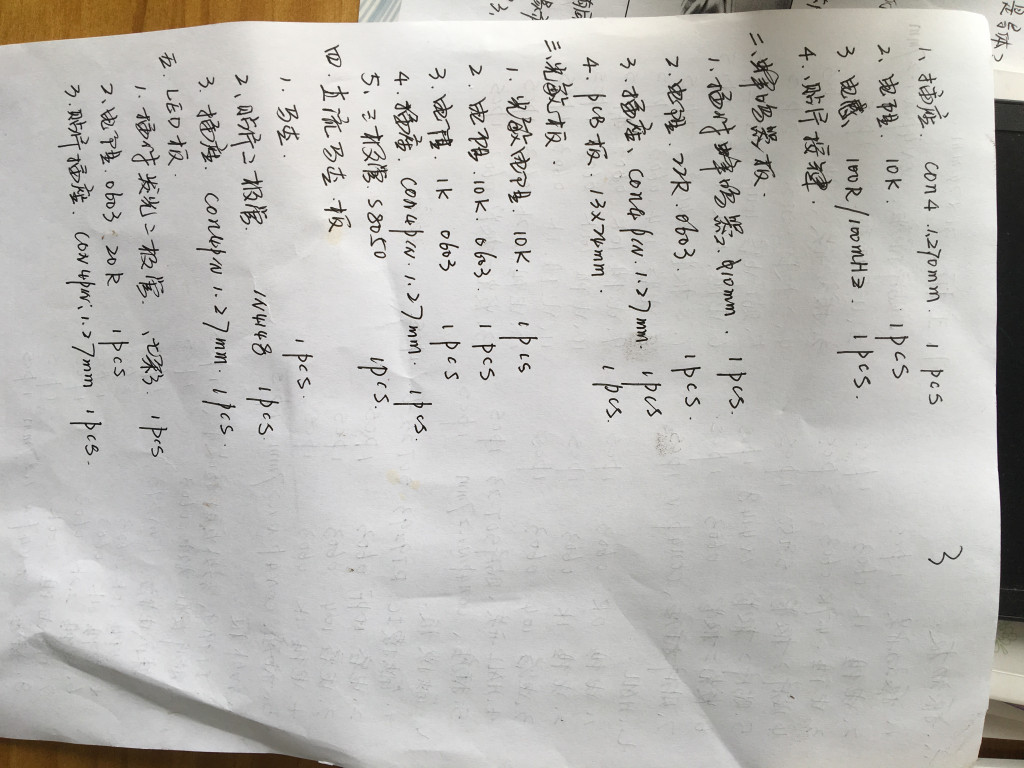 3
1、插座. con4 1.270mm. 1pcs
2、电阻. 10K. 1pcs
3、电感. 100R/100MHZ. 1pcs.
4、贴片按键.
二、蜂鸣器板.
1、插件蜂鸣器. φ10mm. 1pcs.
2、电阻. 22R. 0603. 1pcs
3、插座. con4pin. 1.27mm. 1pcs
4、pcB板. 13x24mm. 1pcs.
三、光敏板.
1、光敏电阻. 10K. 1pcs
2、电阻. 10K. 0603. 1pcs
3、电阻. 1K 0603 1pcs
4、插座. con4pin. 1.27mm. 1pcs.
5、三极管. S8050 1pcs.
四、直流马达板
1、马达. 1pcs.
2、贴片二极管. IN4148 1pcs.
3、插座. con4pin 1.27mm. 1pcs.
五、LED板.
1、插件发光二极管、七彩. 1pcs
2、电阻. 0603. 20R 1pcs
3、贴片插座. con4pin. 1.27mm 1pcs.